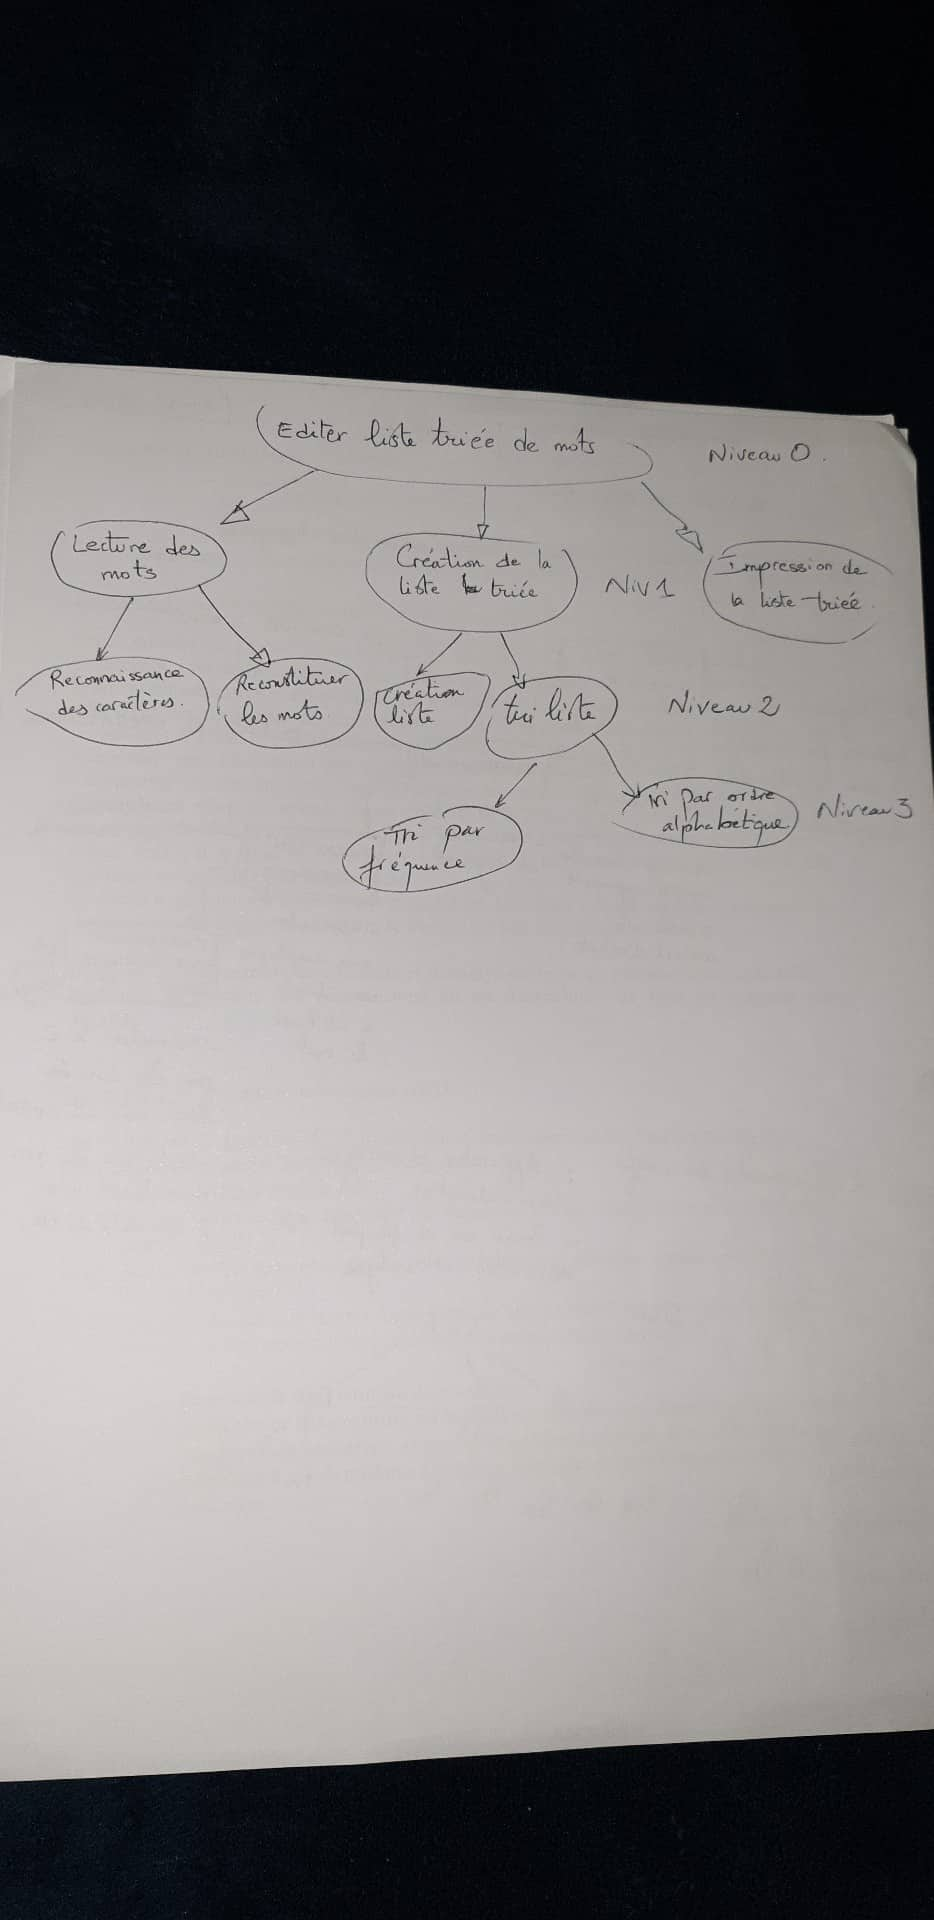 Editer liste triée de mots
Niveau 0.
Lecture des
mots
Création de la
liste triée
Niv 1
Impression de
la liste triée.
Reconnaissance
des caractères.
Reconstituer
les mots
Création
liste
tri liste
Niveau 2
Tri par
fréquence
Tri par ordre
alphabétique
Niveau 3